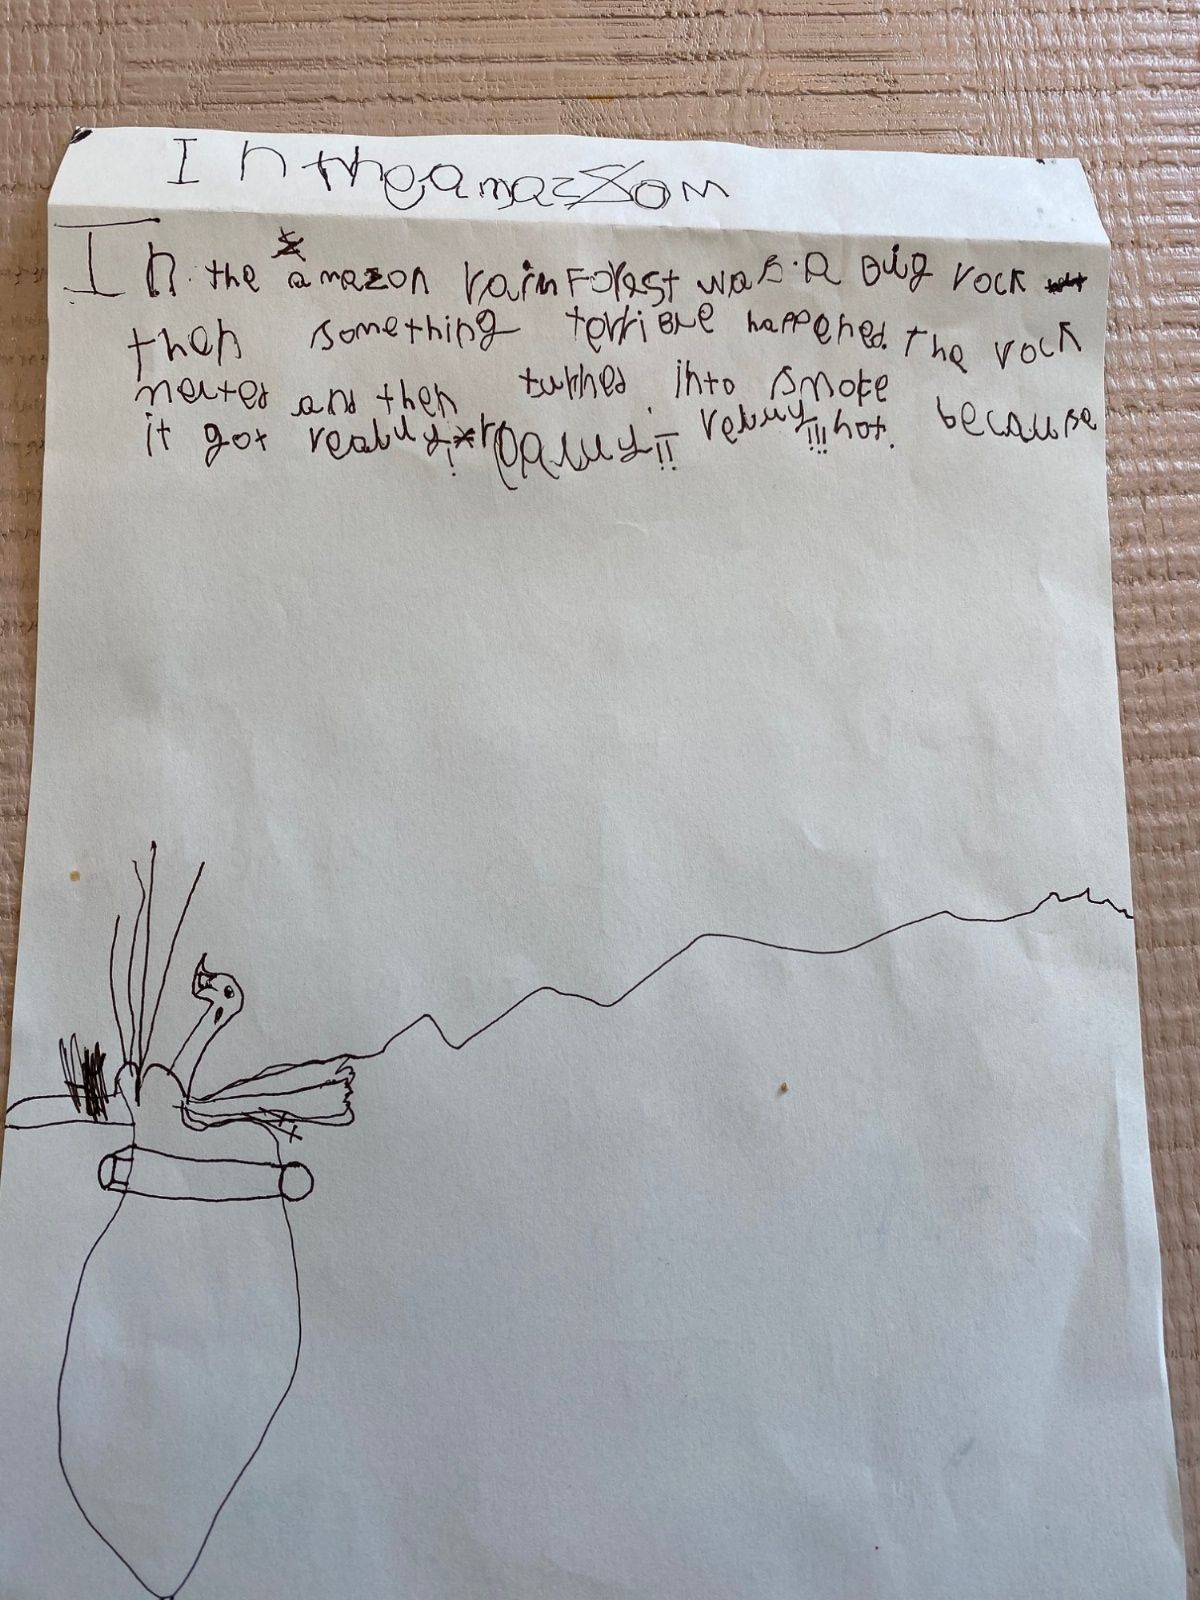 In the amazon
In the amazon rainForest was a Big rock
then something terriBle happened. The rock
melted and then turned into smoke because
it got really! really!! really!!! hot.